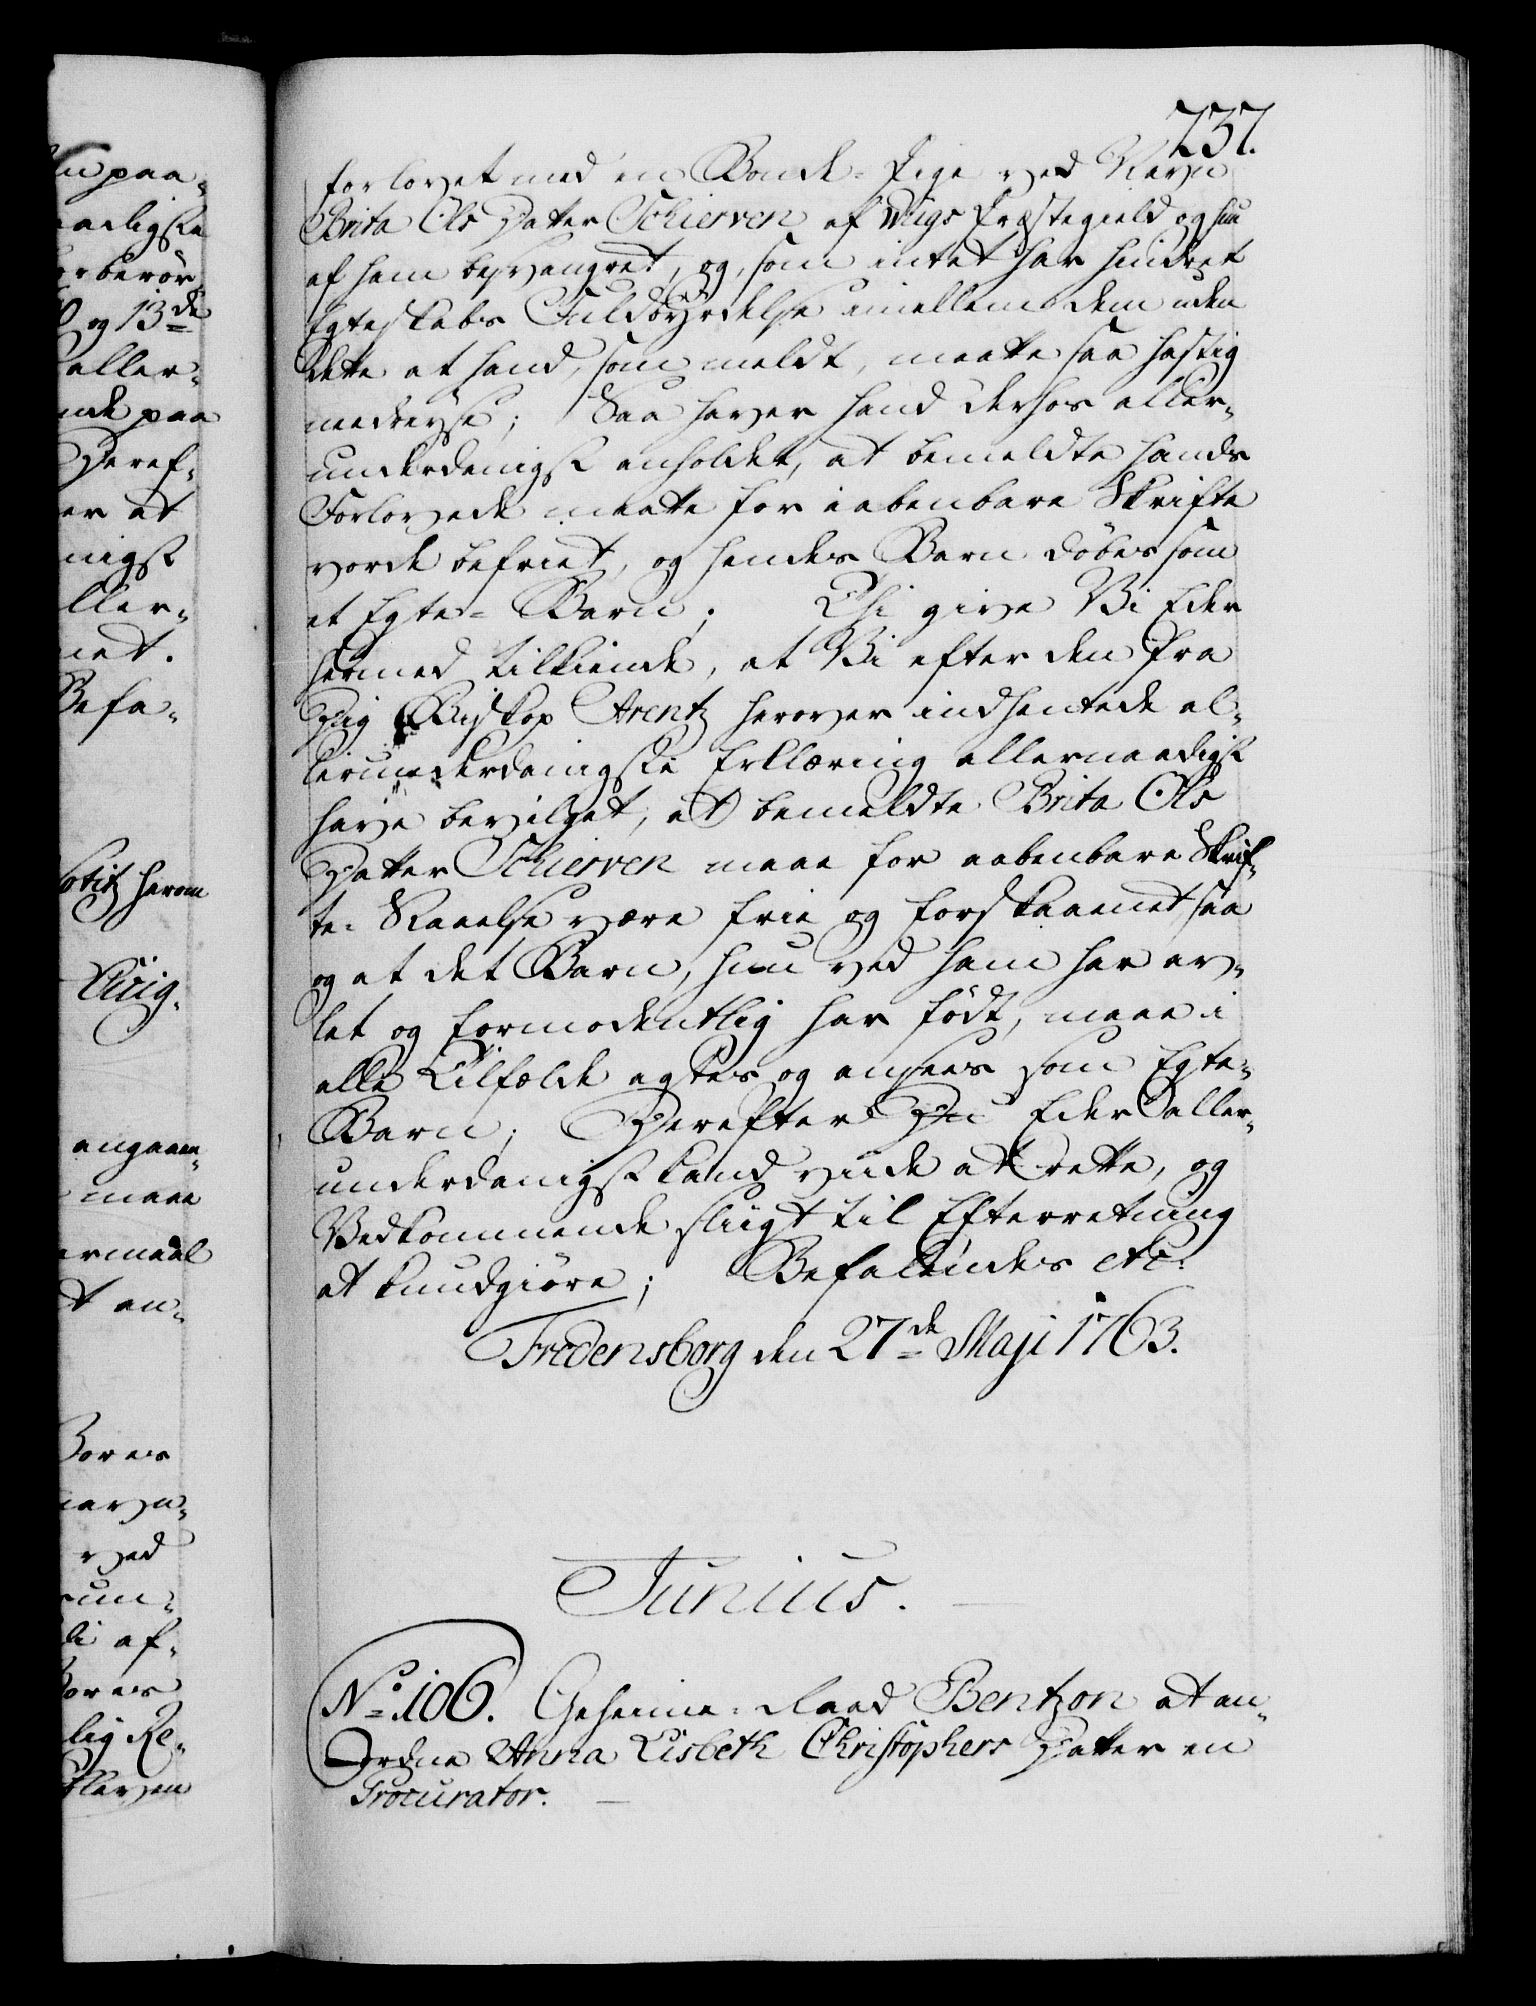 237.
forlovet med en Bonde-Pige ved Navn
Brita Ols Datter Schierven af Wiigs Præstegield og hun
af ham besvangret, og, som intet har hindret
Egteskabs Fuldbyrdelse imellem dem uden
dette at hand, som meldt, maatte saa hastig
Saa haver hand derhos aller-
underdanigst anholdet, at bemeldte hands
Forlovede maatte for aabenbare Skrifte
vorde befriet, og hendes Barn döbes som
et Egte-Barn; Thi give Vi Eder
hermed tilkiende, at Vi efter den fra
Dig Biskop Arentz herover indhentede al-
lerunderdanigste Erklæring allernaadigst
have bevilget, at bemeldte Brita Ols
Datter Schierven maae for aabenbare Skrif-
te- Staaelse være frie og forskaanet saa
og at det Barn, hun ved ham har av-
let og formodentlig har födt, maae i
alle Tilfælde agtes og ansees som Egte-
Barn; Derefter I Eder aller-
underdanigst kand viide at rette, og
Vedkommende sligt til Efterretning
at kundgiöre; Befalendes etc.
Fredensborg den 27de Maji 1763.
Junius.
No. 106. Geheime-Raad Bentzon at an-
ordne Anna Lisbeth Christophers Datter en
Procurator.